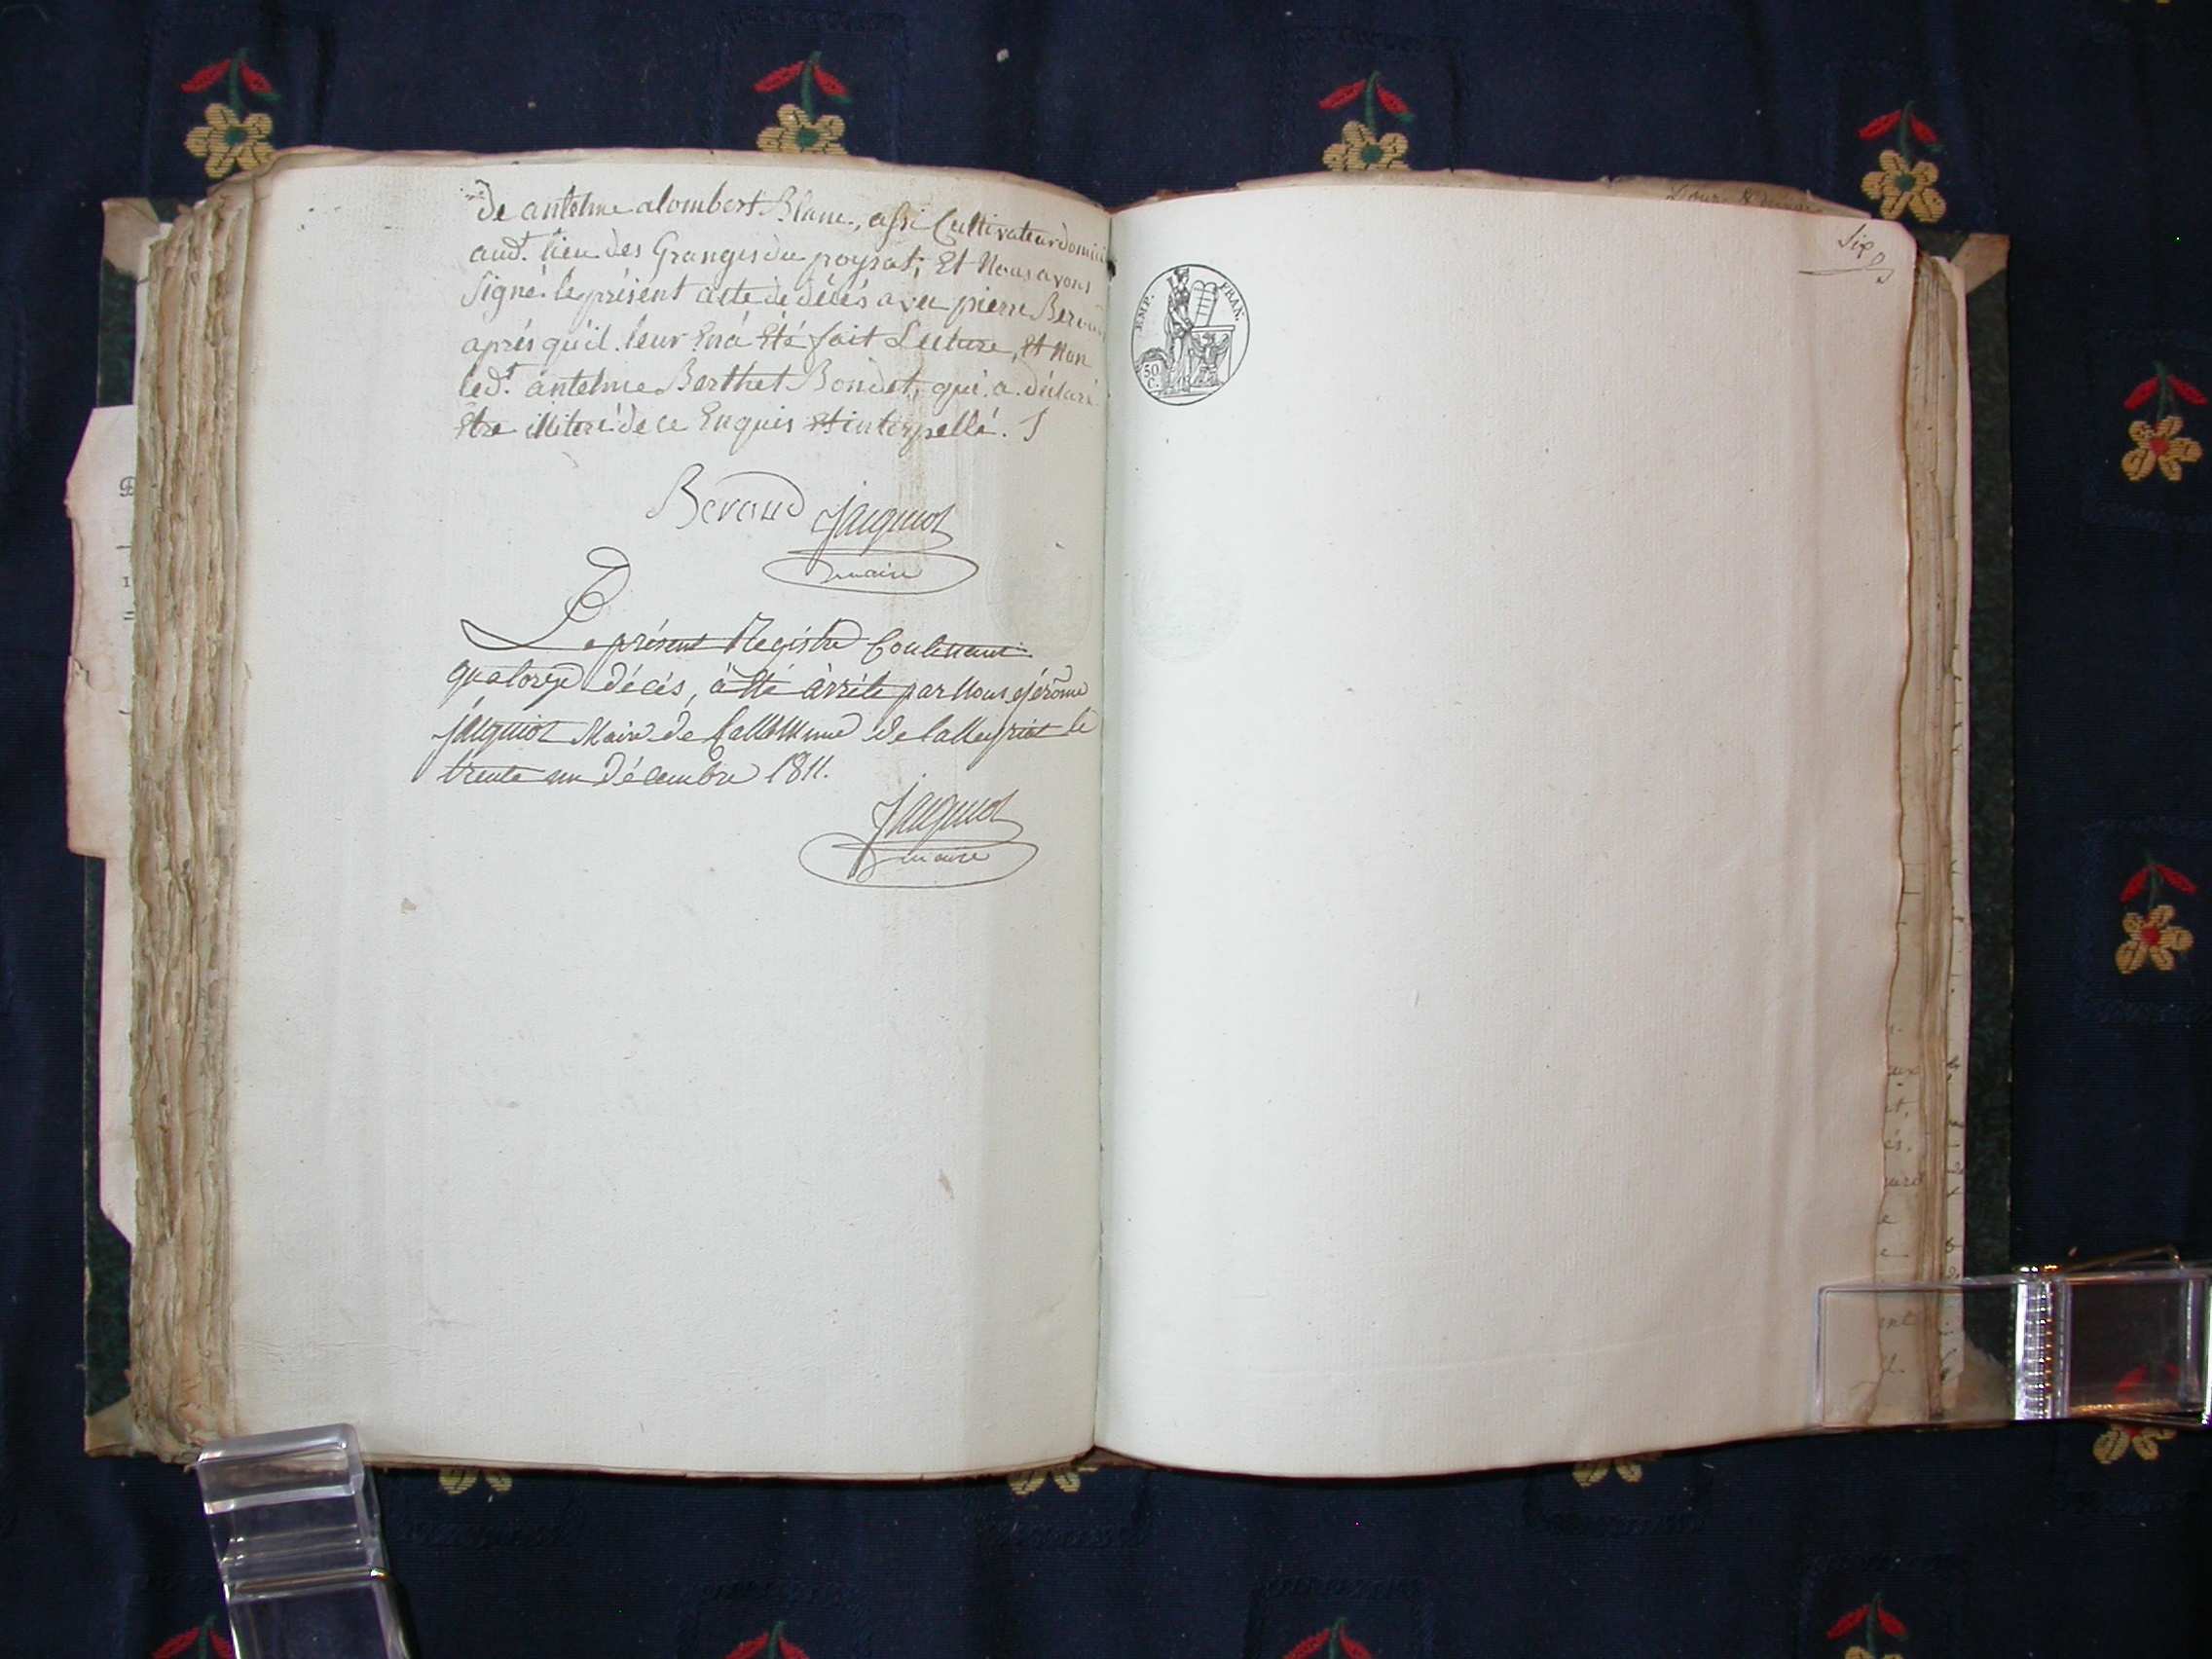 de antelme alombert Blanc, assi Cultivateur domici
aud.t lieu des Granges du poysat; Et Nous avons
Signé le présent acte de décés avec pierre Beraud
aprés qu'il leur En a Eté fait Lecture, Et Non
led.t antelme Berthet Bondet, qui a déclaré
Etre illiteré de ce Enquis et interpellé.
Beraud Jacquiot
maire
Le présent Registre Contenant
quatorze décés, à été arrêté par Nous Jérôme
Jacquiot Maire de la Commune de le
trente un Décembre 1811.
Jacquiot
maire
Six
EMP. FRAN.
50
C.